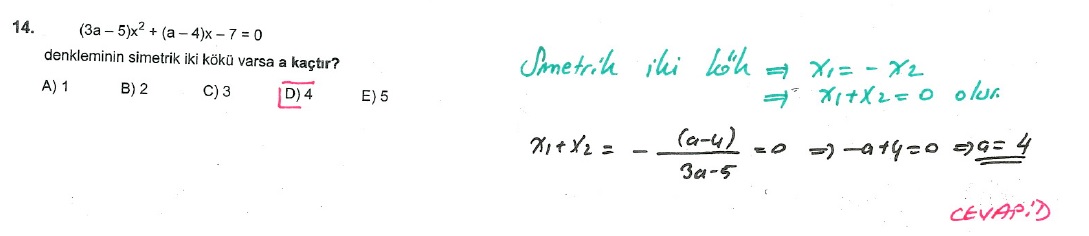 14. (3a – 5)x² + (a – 4)x – 7 = 0
denkleminin simetrik iki kökü varsa a kaçtır?
A) 1 B) 2 C) 3 D) 4 E) 5
Simetrik iki kök ⇒ x₁ = - x₂
⇒ x₁ + x₂ = 0 olur.
x₁ + x₂ = - (a-4)/3a-5 = 0 ⇒ -a+4=0 ⇒ a = 4
CEVAP: D